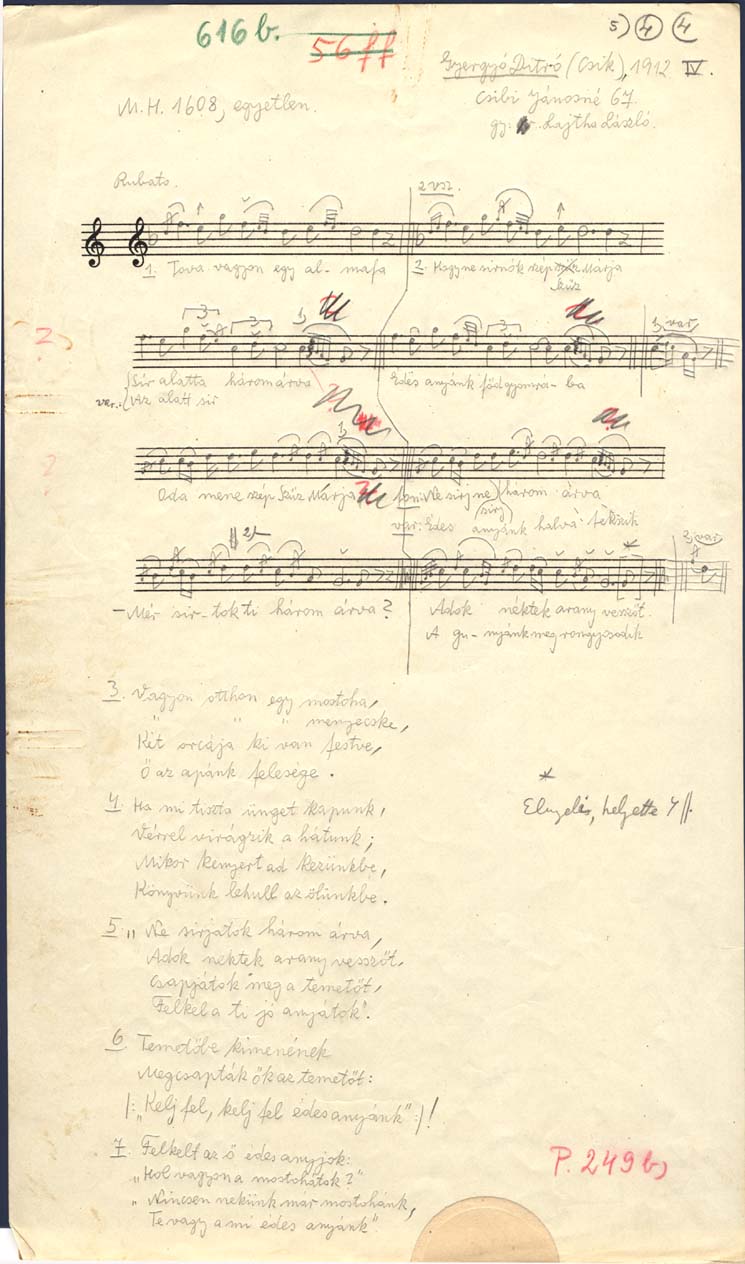 616b.
56ff
5) 4 4
Gyergyó Ditró (Csik), 1912 IV.
M.H. 1608, egyetlen.
Csibi Jánosné 67.
gy: Lajtha László.
Rubato.
2 vsz.
1. Tova vagyon egy al- mafa
2. Hogyne sirnók szép szűz Márja
szűz
3 3 1)
3
1) var
2
Sir alatta három árva
Édes anyánk föd gyomrá- ba
var.: Az alatt sir
1)
2
Oda mene szép Szűz Márja
Ne sirj ne három árva
sirj
var: Édes anyánk halva fekszik
2)
*
2) var
– Mér sir- tok ti három árva?
Adok néktek arany vesszőt.
A gu- nyánk meg rongyosodik
3. Vagyon otthon egy mostoha,
" " " menyecske,
Két orcája ki van festve,
Ő az apánk felesége.
4. Ha mi tiszta ünget kapunk,
Vérrel virágzik a hátunk;
Mikor kenyert ad kezünkbe,
Könyvünk lehull az ölünkbe.
*
helyette
5. „Ne sirjatok három árva,
Adok néktek arany vesszőt,
Csapjátok meg a temetőt,
Felkel a ti jó anyjátok".
6. Temetőbe kimenének
Megcsapták ők az temetőt:
|: „Kelj fel, kelj fel édes anyánk" :|!
7. Felkelt az ő édes anyjok:
„Hol vagyon a mostohátok?"
„Nincsen nekünk már mostohánk,
Te vagy a mi édes anyánk".
P. 249b)